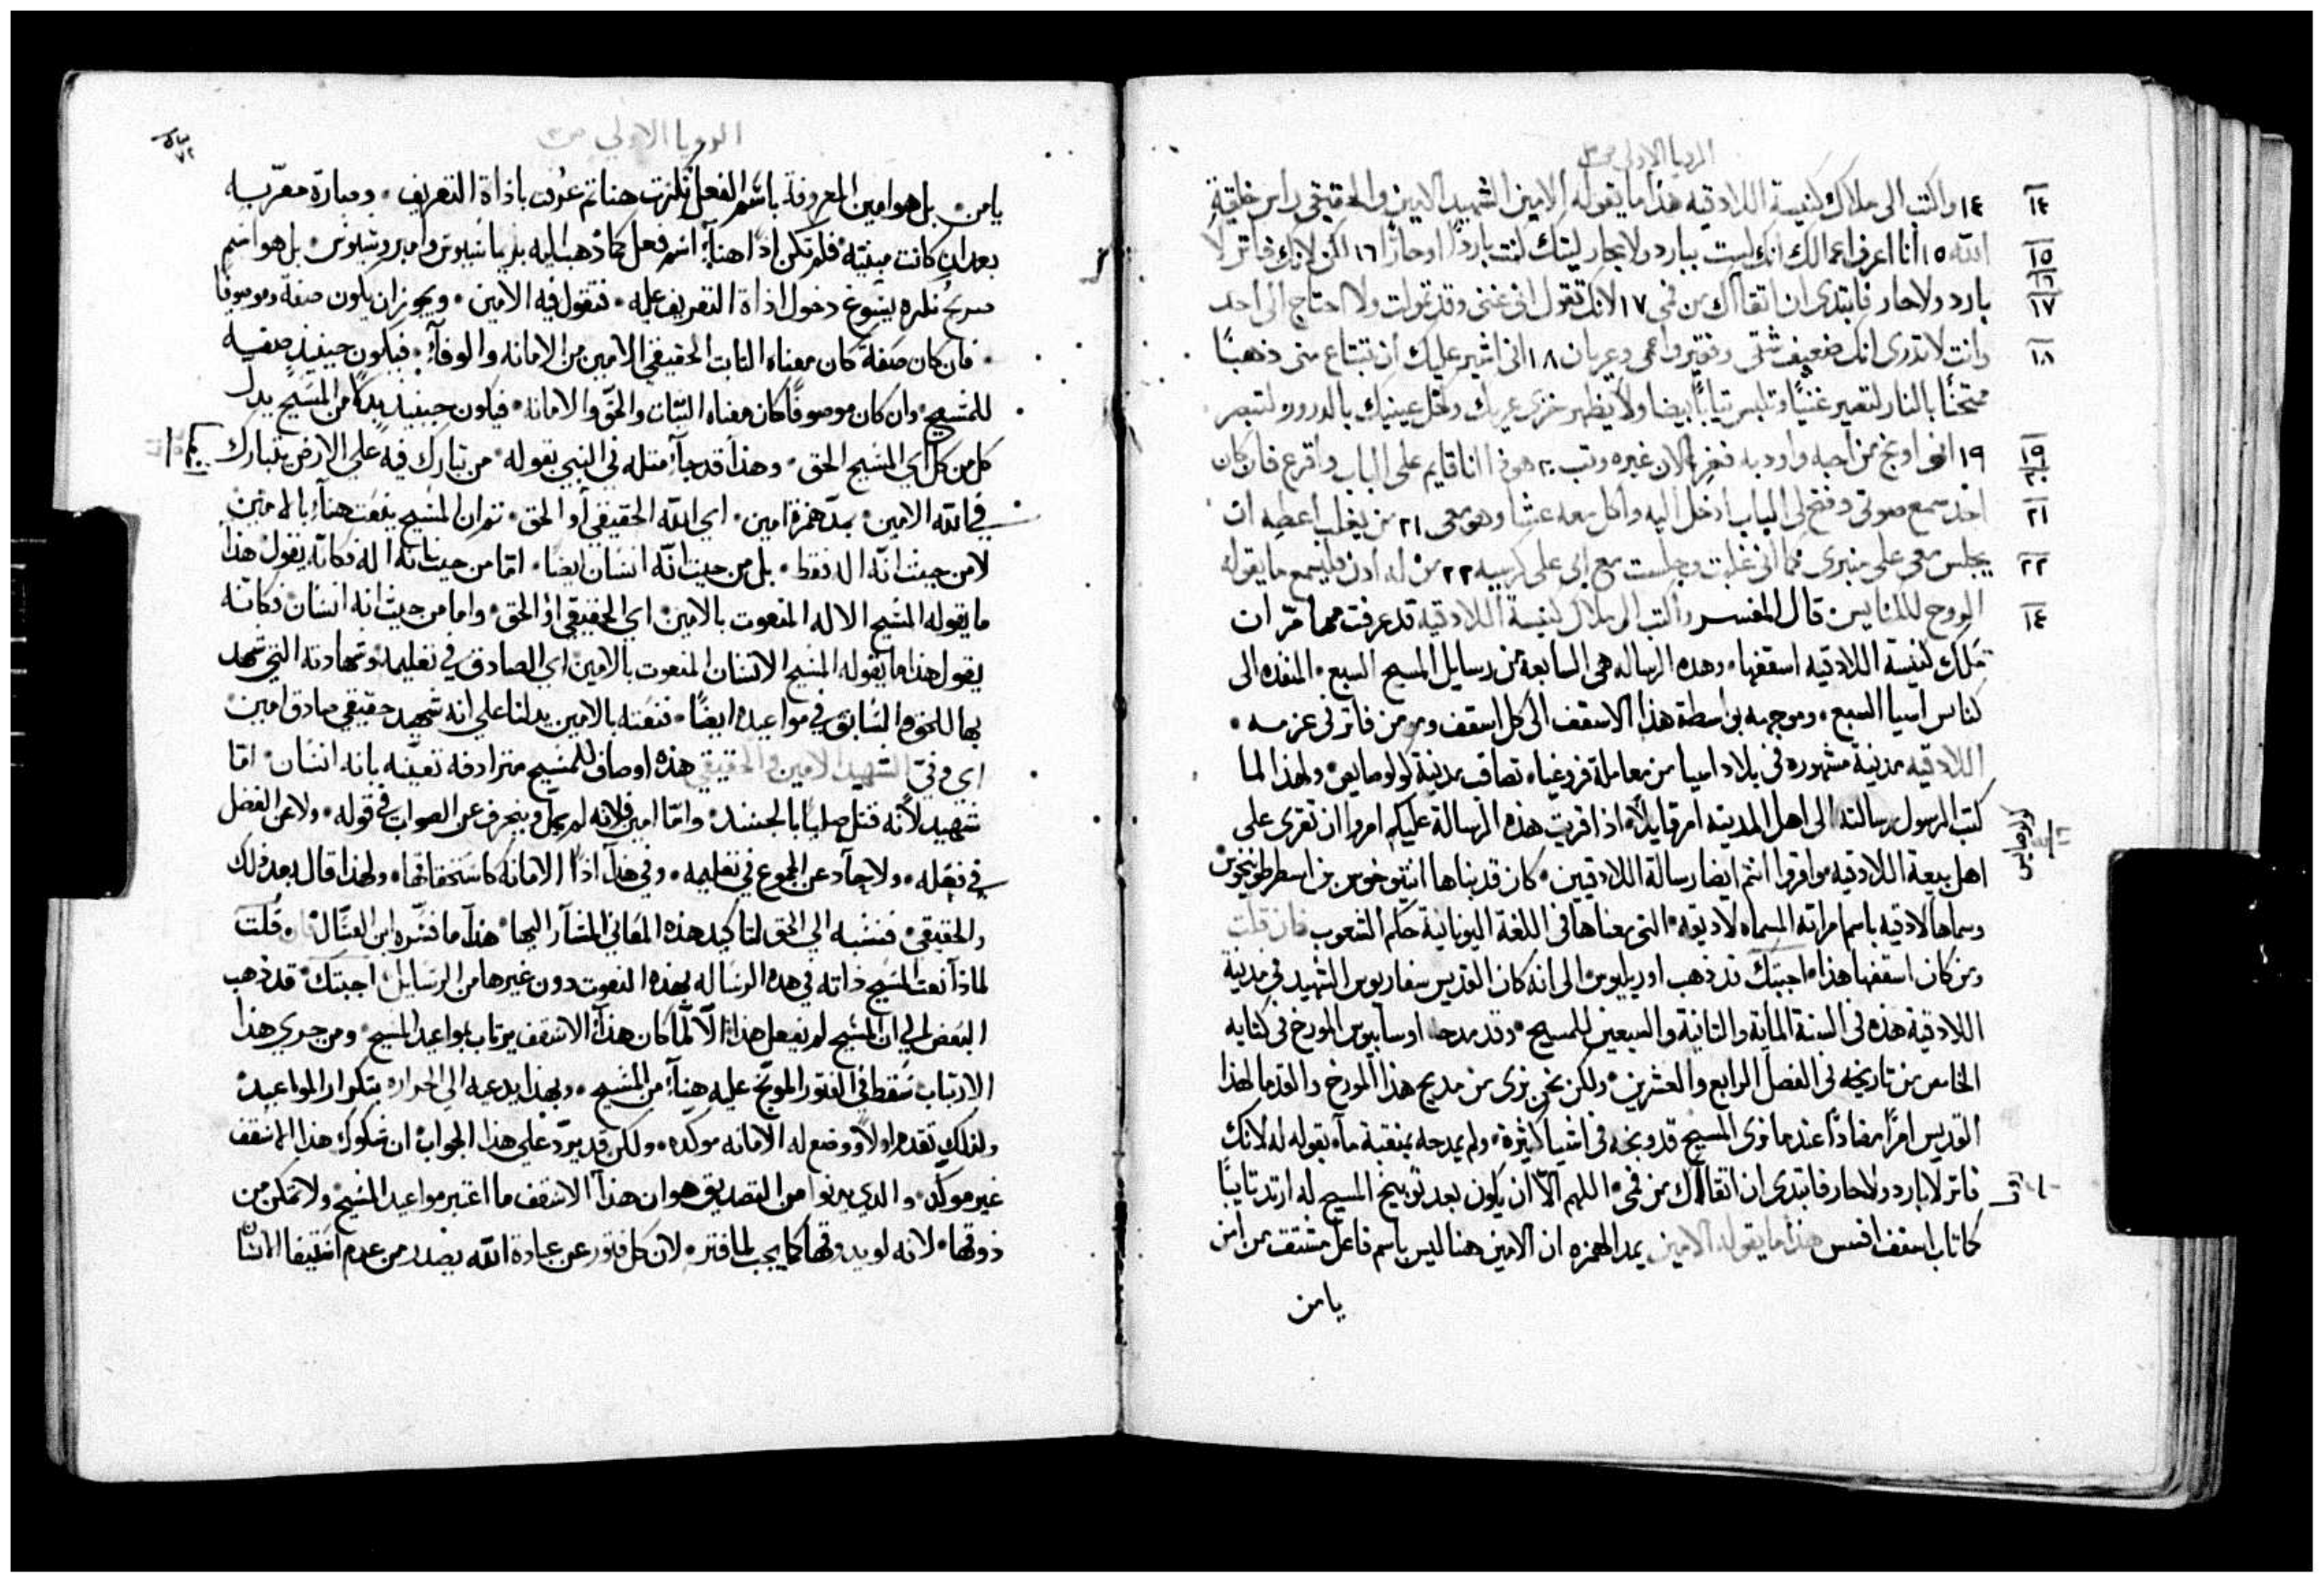 الرويا الاولي ص ٣
١٤ واكتب الى ملاك كنيسة اللادقيه هذا ما يقوله الامين الشهيد الامين والحقيقي راس خليقة
الله ١٥ أنا اعرف اعمالك انك لست ببارد ولا بحار ليتك كنت باردًا او حارًا ١٦ لكن لانك فاتر لا
بارد ولا حار فابتدي ان اتقاآك من فمي ١٧ لانك تقول اني غني وقد تمولت ولا احتاج الى احد
وانت لا تدرى انك ضعيف شقي وفقير واعمى وعريان ١٨ اني اشير عليك ان تبتاع مني ذهبًا
ممتحنًا بالنار لتصير غنيًا وتلبس ثيابًا بيضا ولا يظهر خزي عريك وكحل عينيك بالدرور لتبصر
١٩ انى اوبخ من احبه واودبه فغر الان غيره وتب ٢٠ هوذا انا قايم على الباب واقرع فان كان
احد سمع صوتى وفتح لي الباب ادخل اليه واكل معه عشا وهو معي ٢١ من يغلب اعطيه ان
يجلس معي على منبرى كما انى غلبت وجلست مع ابى على كرسيه ٢٢ من له اذن فليسمع ما يقوله
الروح للكنايس قال المفسر واكتب الى ملاك كنيسة اللادقيه قد عرفت مما مر ان
ملاك كنيسة اللادقيه اسقفها وهذه الرساله هى السابعة من رسايل المسيح السبع المنفذه الى
كنايس اسيا السبع وموجهه بواسطة هذا الاسقف الى كل اسقف ومومن فاتر فى عزمه
اللادقيه مدينة مشهوره فى بلاد اسيا من معاملة فروغيا تصاقب مدينة كولوصايس ولهذا لما
كتب الرسول رسالته الى اهل المدينه امر قايلاً اذا قريت هذه الرسالة عليكم امروا ان تقرى على
اهل بيعة اللادقيه واقروا انتم ايضا رسالة اللادقيين كان قد بناها انتيوخوس بن اسطرطونيخوس
وسماها لادقيه باسم امراته المسماه لاديقه التى معناها فى اللغة اليونانية حكم الشعوب فان قلت
ومن كان اسقفها هذا اجبتك قد ذهب اوريليوس الى انه كان القديس سفاريوس الشهيد فى مدينة
اللادقية هذه فى السنة الماية والثانية والسبعين للمسيح وقد مدحه اوسابيوس المورخ فى كتابه
الخامس من تاريخه فى الفصل الرابع والعشرين ولكن نحن نرى من مديح هذا المورخ والقدما لهذا
القديس امرًا مضادًا عندما نرى المسيح قد وبخه فى اشيا كثيرة ولم يمدحه بمنقبة ما بقوله له لانك
فاتر لا بارد ولا حار فابتدى ان اتقاآك من فمى اللهم الا ان يكون بعد توبيخ المسيح له ارتد تايبًا
كما تاب اسقف افسس هذا ما يقوله الامين بمد الهمزه ان الامين هنا ليس باسم فاعل مشتق من امن
يامن
الرويا الاولي ص ٣
يامن بل هو امين المعروفة باسم الفعل نُكرت هنا ثم عُرف باداة التعريف وصارة معربه
بعد ان كانت مبنيه فلم تكن اذًا هنا اسم فعل كما ذهب اليه بريماسيوس وامبروسيوس بل هو اسم
صريح نكره يسوغ دخول اداة التعريف عليه فتقول فيه الامين ويجوز ان يكون صفة وموصوفًا
فان كان صفة كان معناه الثابت الحقيقي الامين من الامانه والوفا فيكون حينيذٍ صفيه
للمسيح وان كان موصوفًا كان معناه الثبات والحق والامانه فيكون حينيذ بدلا من المسيح بدل
كل من كل اي المسيح الحق وهذا قد جا مثله في النبي بقوله من تبارك فيه علي الارض يتبارك
في الله الامين بمد همزة امين اي الله الحقيقي او الحق ثم ان المسيح ينعت هنا بالامين
لا من حيث انه اله فقط بل من حيث انه انسان ايضًا اما من حيث انه اله فكانه يقول هذا
ما يقوله المسيح الاله المنعوت بالامين اي الحقيقي او الحق واما من حيث انه انسان فكانه
يقول هذا ما يقوله المسيح الانسان المنعوت بالامين اي الصادق في تعليمه وشهادته التي شهد
بها للحق والسابق في مواعيده ايضًا فنعته بالامين يدلنا علي انه شهيد حقيقي صادق امين
اي وفيّ الشهيد الامين والحقيقي هذه اوصاف للمسيح مترادفه تعينه بانه انسان اما
شهيد لانه قتل صلبًا بالجسد واما امين فلانه لم يمل وينحرف عن الصواب في قوله ولا عن الفضل
في فعله ولا حاد عن المجموع في تعليمه وفي هذا اذًا الامانه كاستحقاقها ولهذا قال بعد ذلك
والحقيقي فنسبه الي الحق لتاكيد هذه المعاني المشار اليها هذا ما فسره ابن العسّال فان قلت
لماذا نعت المسيح ذاته في هذه الرساله بهذه النعوت دون غيرها من الرسايل اجبتك قد ذهب
البعض الي ان المسيح لم يفعل هذا الا لما كان هذا الاسقف يرتاب بمواعيد المسيح ومن جري هذا
الارتياب سقط في الفتور الموبخ عليه هنا من المسيح ولهذا يدعيه الي الحراره بتكرار المواعيد
ولذلك تقدم اولاً ووضع له الامانه موكده ولكن قد يرد علي هذا الجواب ان شكوك هذا الاسقف
غير موكده والذي يدنوا من التصديق هو ان هذا الاسقف ما اعتبر مواعيد المسيح ولا تمكن من
ذوقها لانه لو يدوقها كما يجب لما فتر لان كل فتور عن عبادة الله يصدر من عدم اقتيفا الانسان